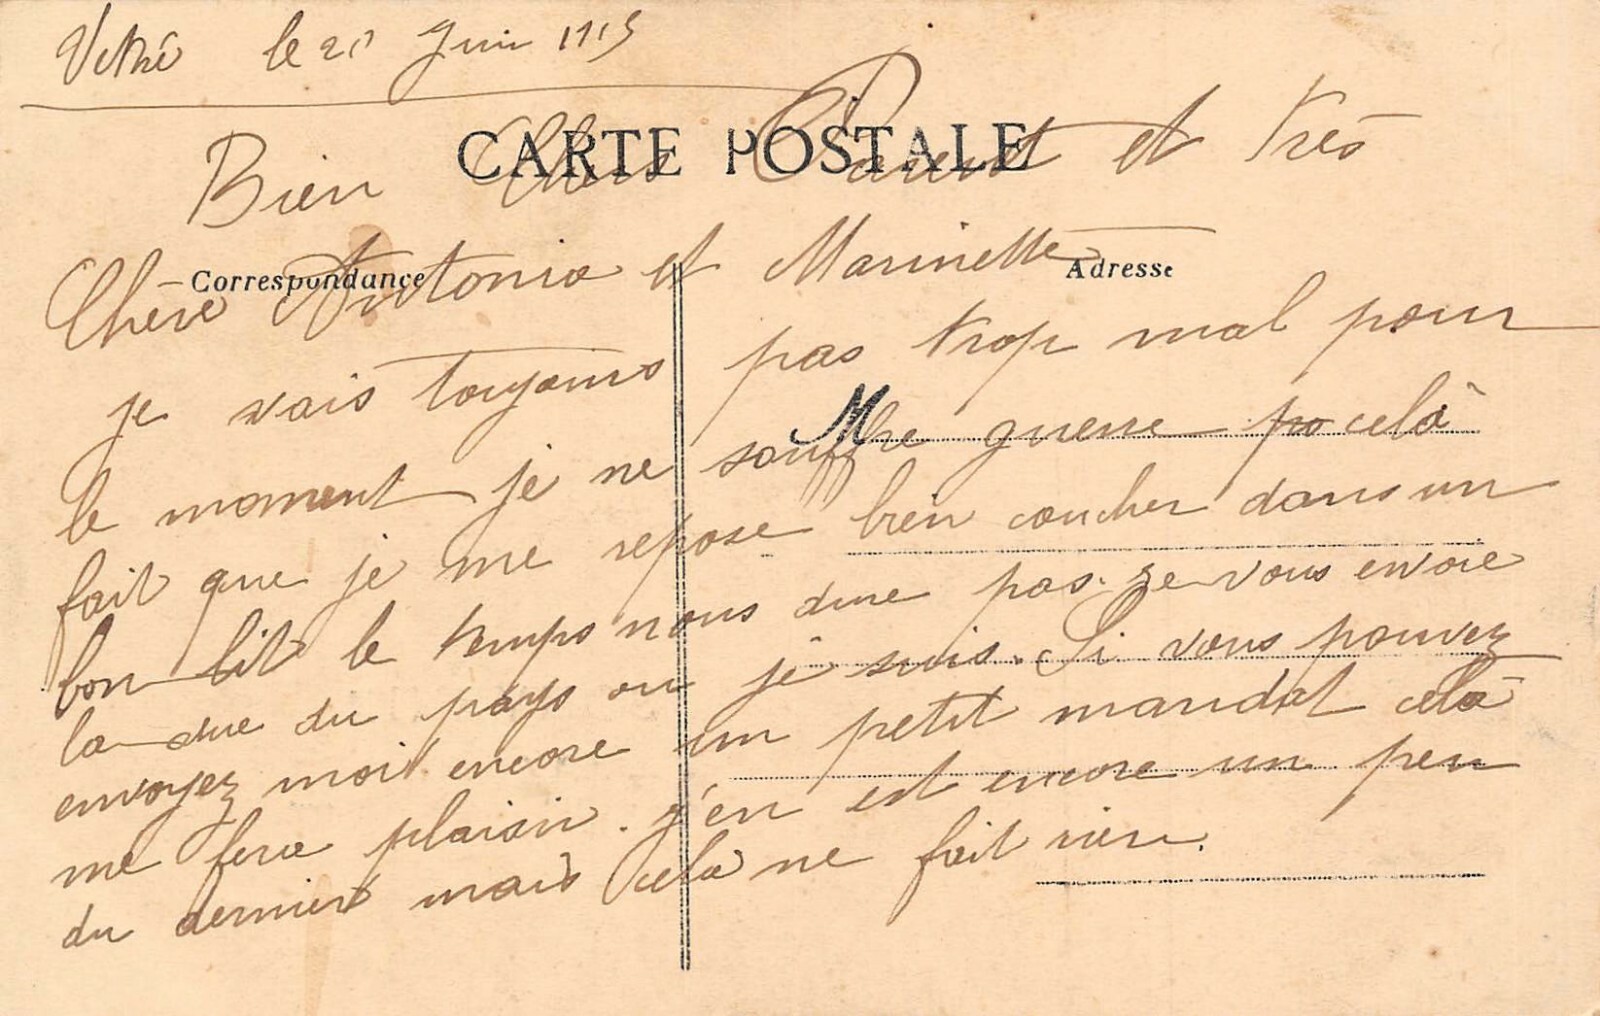 Vitré le 20 Juin 1915
CARTE POSTALE
Bien Chers Parent et très
Correspondance
Adresse
Chère Antonia et Marinette
je vais toujours pas trop mal pour
le moment je ne souffre guerre celà
M
fait que je me repose bien coucher dans un
bon lit le temps nous dure pas. Je vous envoie
la vue du pays ou je suis. Si vous pouvez
envoyez moi encore un petit mandat celà
me fera plaisir. j'en est encore un peu
du dernier mais cela ne fait rien.